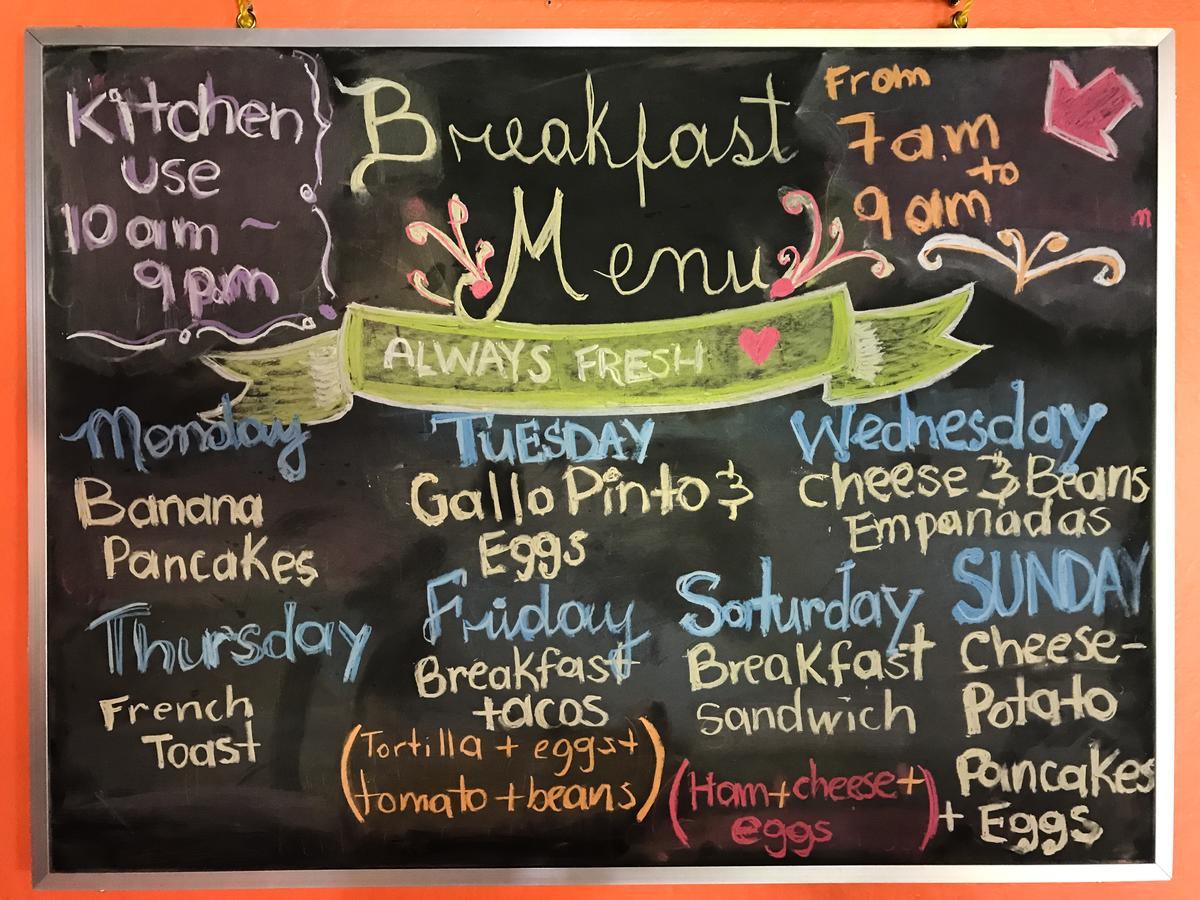 Kitchen
use
10 am ~
9 pm
Breakfast
Menu
From
7 a.m
to
9 am
ALWAYS FRESH
Monday
Banana
Pancakes
TUESDAY
Gallo Pinto &
Eggs
Wednesday
cheese & Beans
Empanadas
Thursday
French
Toast
Friday
Breakfast
tacos
(Tortilla + eggs+
tomato + beans)
Saturday
Breakfast
sandwich
(Ham+cheese+
eggs)
SUNDAY
Cheese-
Potato
Pancakes
+ Eggs